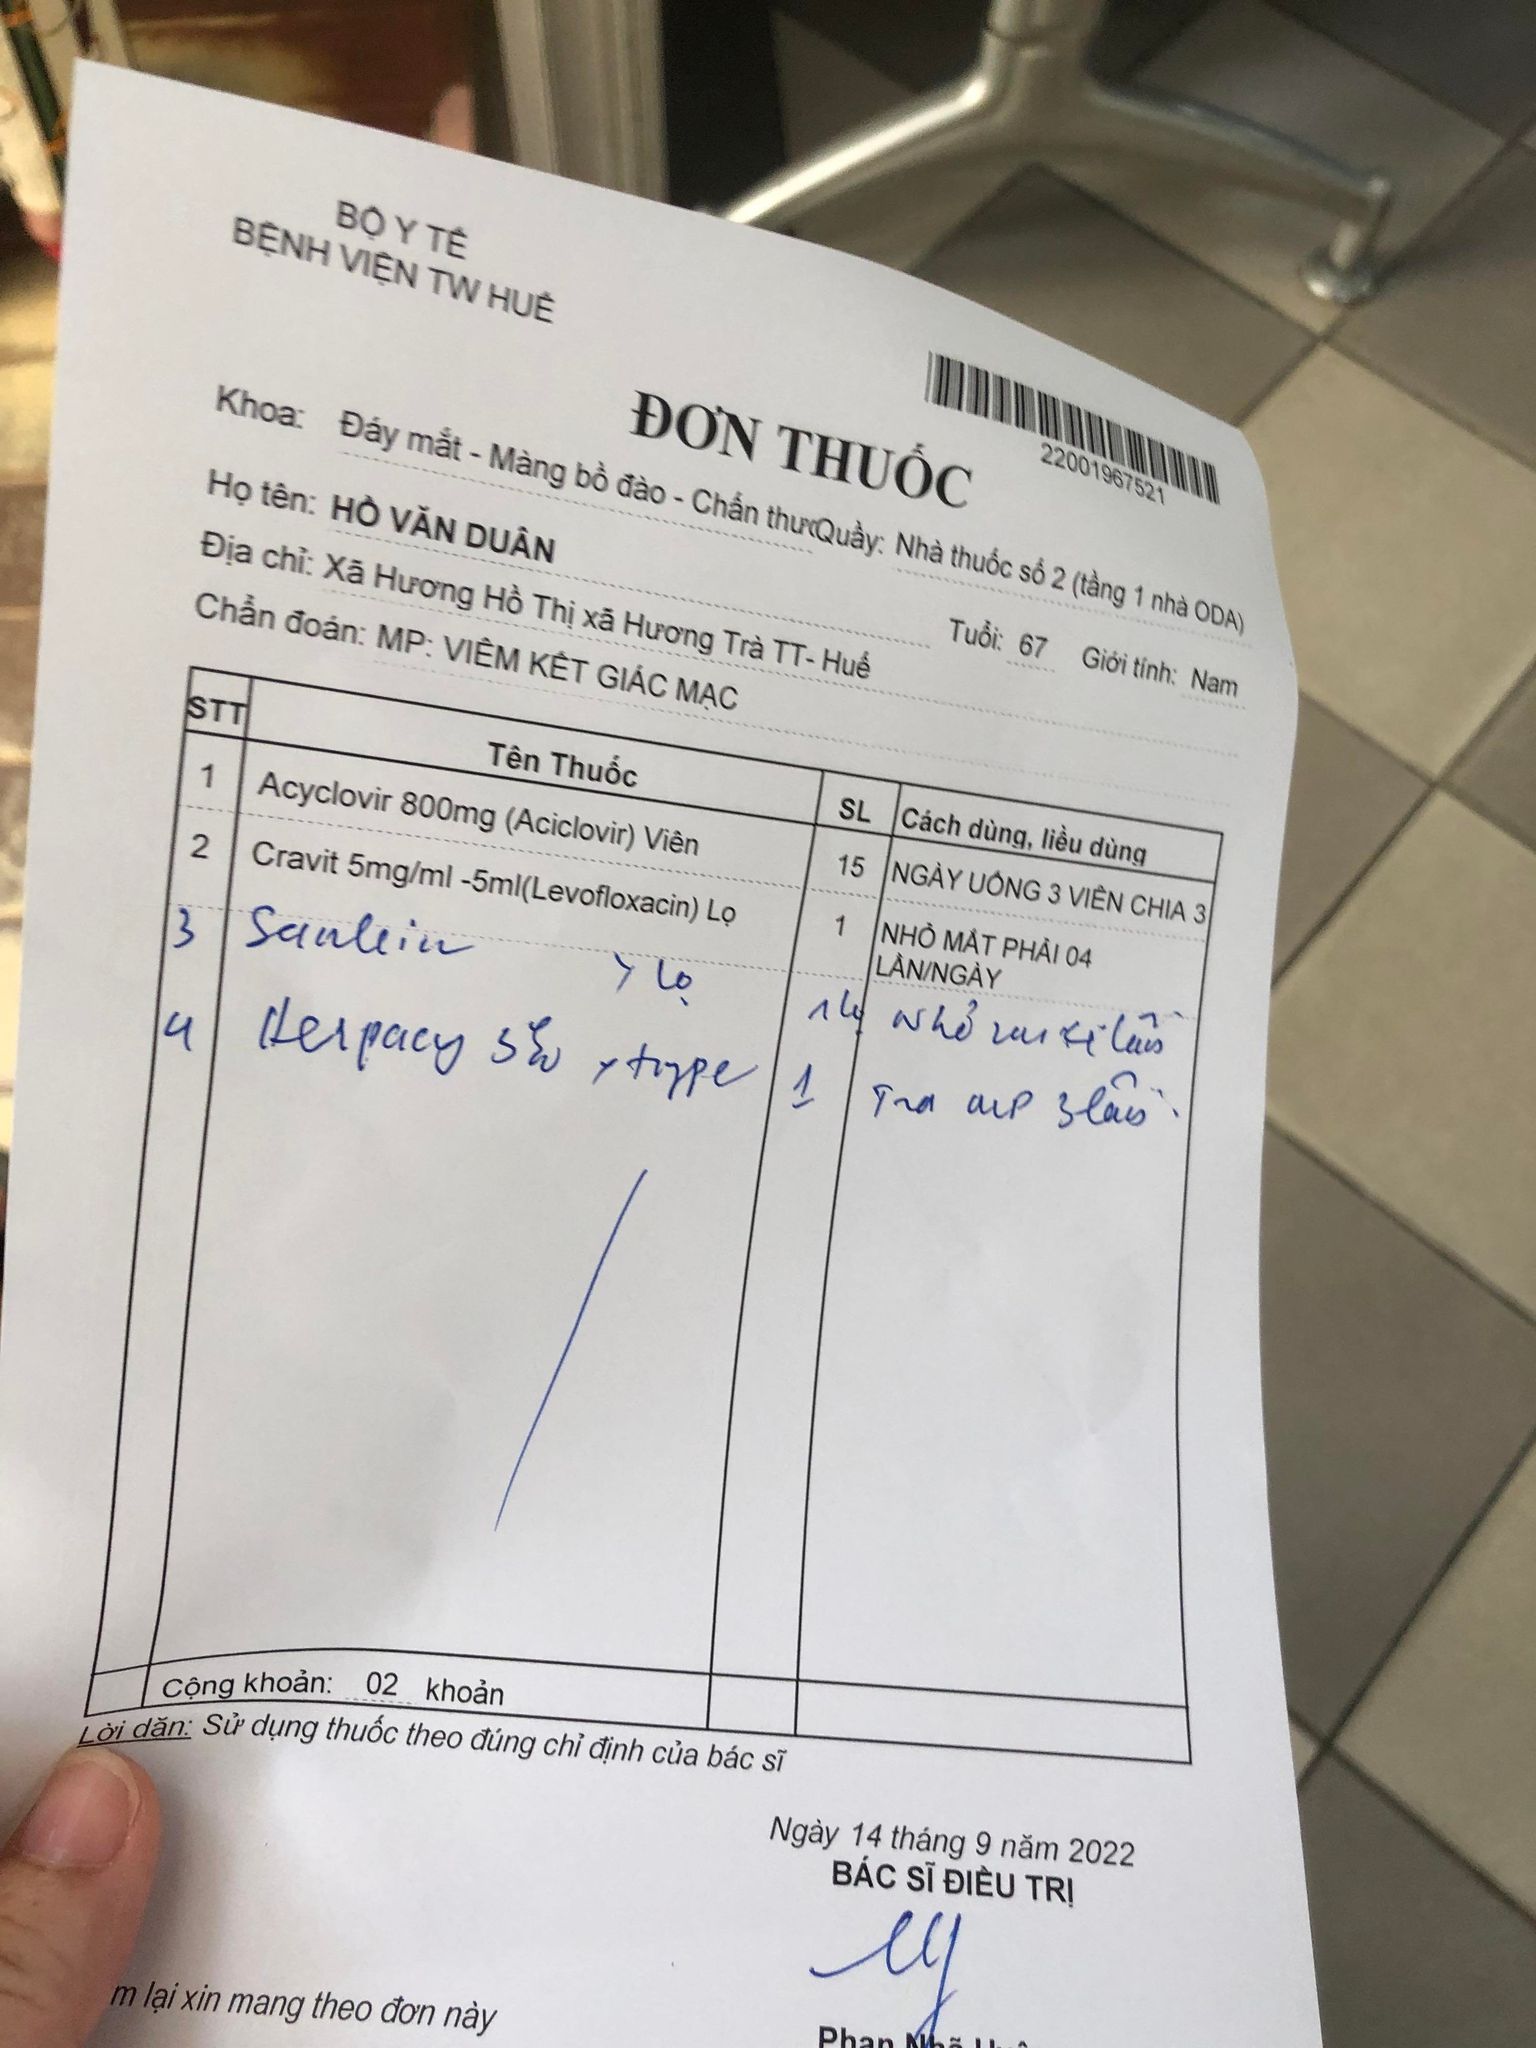 BỘ Y TẾ
BỆNH VIỆN TW HUẾ
22001967521
ĐƠN THUỐC
Khoa: Đáy mắt - Màng bồ đào - Chấn thươ Quầy: Nhà thuốc số 2 (tầng 1 nhà ODA)
Họ tên: HỒ VĂN DUÂN Tuổi: 67 Giới tính: Nam
Địa chỉ: Xã Hương Hồ Thị xã Hương Trà TT- Huế
Chẩn đoán: MP: VIÊM KẾT GIÁC MẠC
STT Tên Thuốc SL Cách dùng, liều dùng
1 Acyclovir 800mg (Aciclovir) Viên 15 NGÀY UỐNG 3 VIÊN CHIA 3
2 Cravit 5mg/ml -5ml(Levofloxacin) Lọ 1 NHỎ MẮT PHẢI 04
LẦN/NGÀY
3 Sanlein lọ Nhỏ lần
4 Herpacy 3% type 1 Tra MP 3 lần
Cộng khoản: 02 khoản
Lời dặn: Sử dụng thuốc theo đúng chỉ định của bác sĩ
Ngày 14 tháng 9 năm 2022
BÁC SĨ ĐIỀU TRỊ
m lại xin mang theo đơn này
Phan Nhã